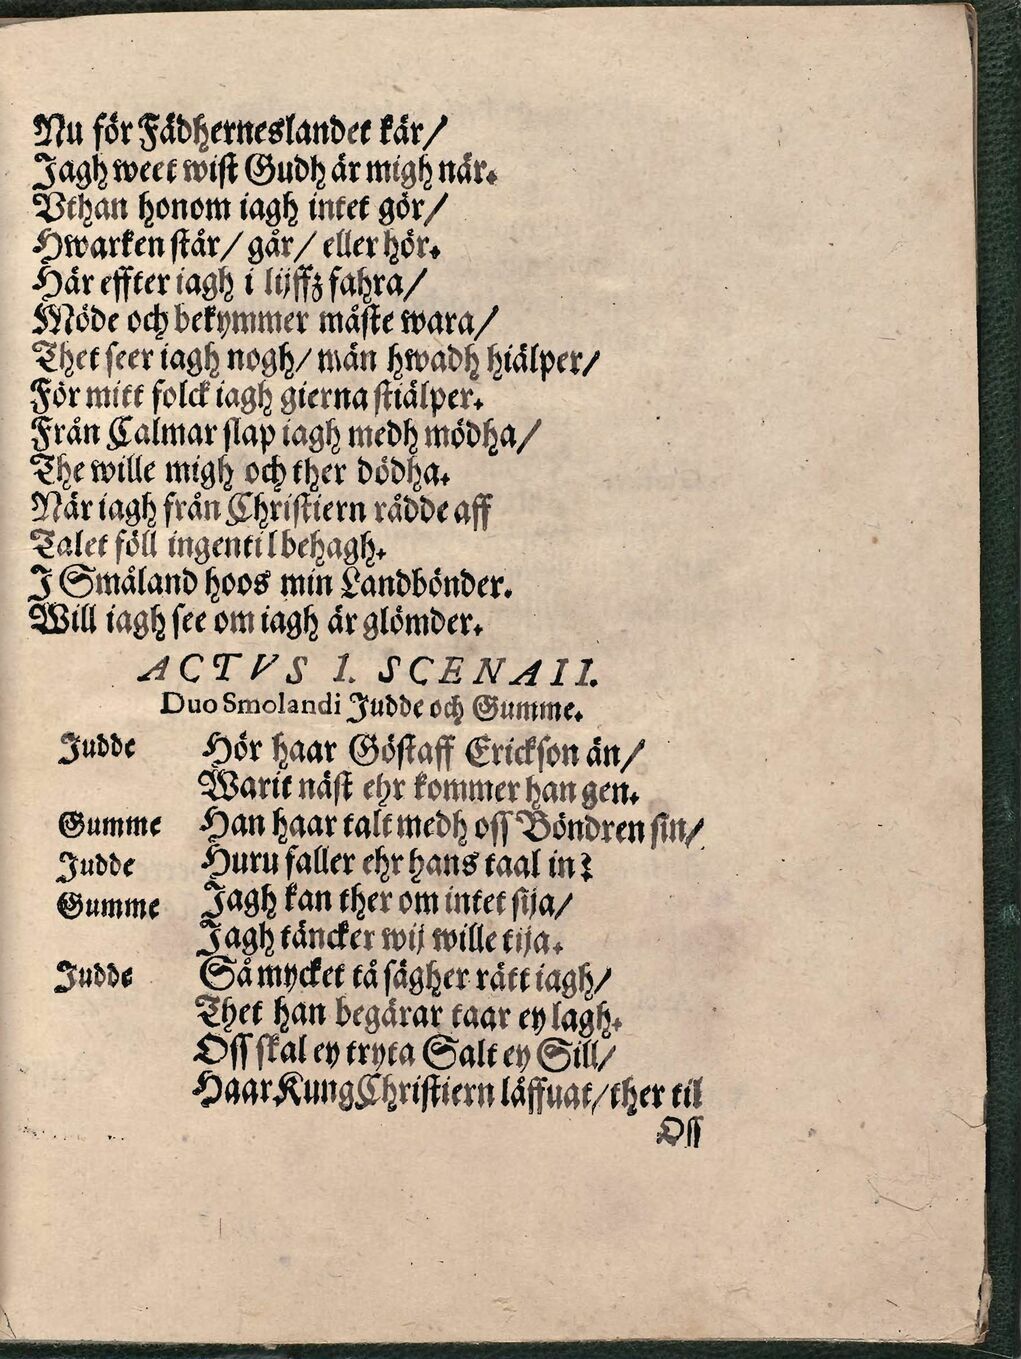 Nu för Fädherneslandet kär/
Jagh weet wist Gudh är migh när.
Vthan honom iagh intet gör/
Hwarken står/ går/ eller hör.
Här effter iagh i lijffz fahra/
Möde och bekymmer måste wara/
Thet seer iagh nogh/ män hwadh hiälper/
För mitt folck iagh gierna stiälper.
Från Calmar slap iagh medh mödha/
The wille migh och ther dödha.
När iagh från Christiern rådde aff
Talet föll ingen til behagh.
J Småland hoos min Landbönder.
Will iagh see om iagh är glömder.
ACTVS I. SCENA II.
Duo Smolandi Judde och Gumme.
Judde Hör haar Göstaff Erickson än/
Warit näst ehr kommer han gen.
Gumme Han haar talt medh oss Böndren sin/
Judde Huru faller ehr hans taal in?
Gumme Jagh kan ther om intet sija/
Jagh täncker wij wille tija.
Judde Så mycket tå sägher rätt iagh/
Thet han begärar taar ey lagh.
Oss skal ey tryta Salt ey Sill/
Haar Kung Christiern låffuat/ ther til
Oss